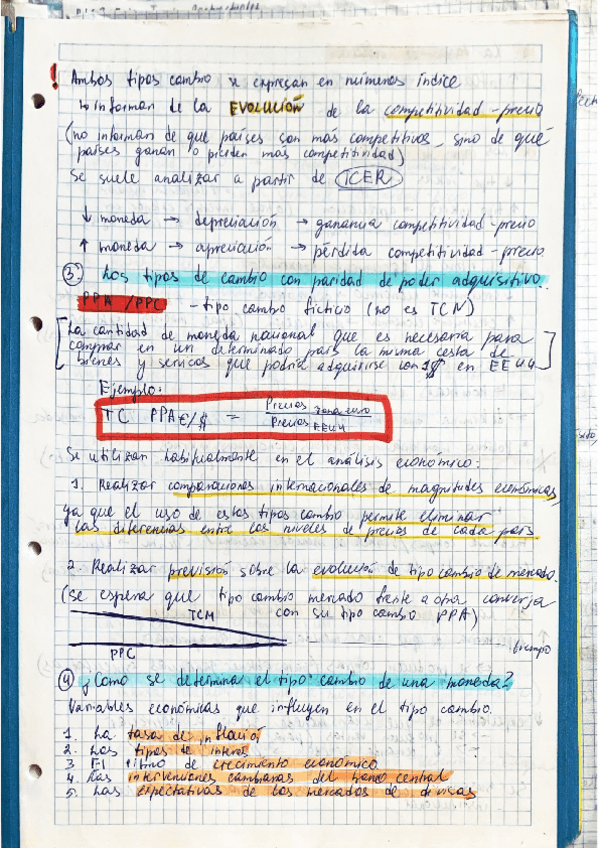 ! Ambos tipos cambio se expresan en números índice
↳ informan de la EVOLUCIÓN de la competitividad-precio
(no informan de que países son más competitivos, sino de qué
países ganan o pierden más competitividad)
Se suele analizar a partir de ICER
↓ moneda → depreciación → ganancia competitividad-precio
↑ moneda → apreciación → pérdida competitividad-precio
3. Los tipos de cambio con paridad de poder adquisitivo.
PPA / PPC - tipo cambio ficticio (no es TCN)
[La cantidad de moneda nacional que es necesaria para
comprar en un determinado país la misma cesta de
bienes y servicos que podría adquirirse con 1$ en EEUU]
Ejemplo:
TC PPA €/$ = Precios zona euro / Precios EEUU
Se utilizan habitualmente en el análisis económico:
1. Realizar comparaciones internacionales de magnitudes económicas,
ya que el uso de estos tipos cambio permite eliminar
las diferencias entre los niveles de precios de cada país
2. Realizar previsión sobre la evolución de tipo cambio de mercado.
(se espera que tipo cambio mercado frente a otra converja
con su tipo cambio PPA)
TCM
PPC
tiempo
4. ¿Como se determina el tipo cambio de una moneda?
Variables económicas que influyen en el tipo cambio.
1. La tasa de inflación
2. Los tipos de interés
3 El ritmo de crecimiento económico
4. Las intervenciones cambiarias del banco central
5. Las expectativas de los mercados de divisas